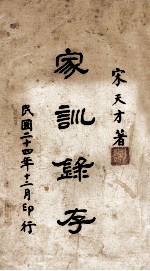 宋天才著
家訓錄存
民國二十四年十二月印行